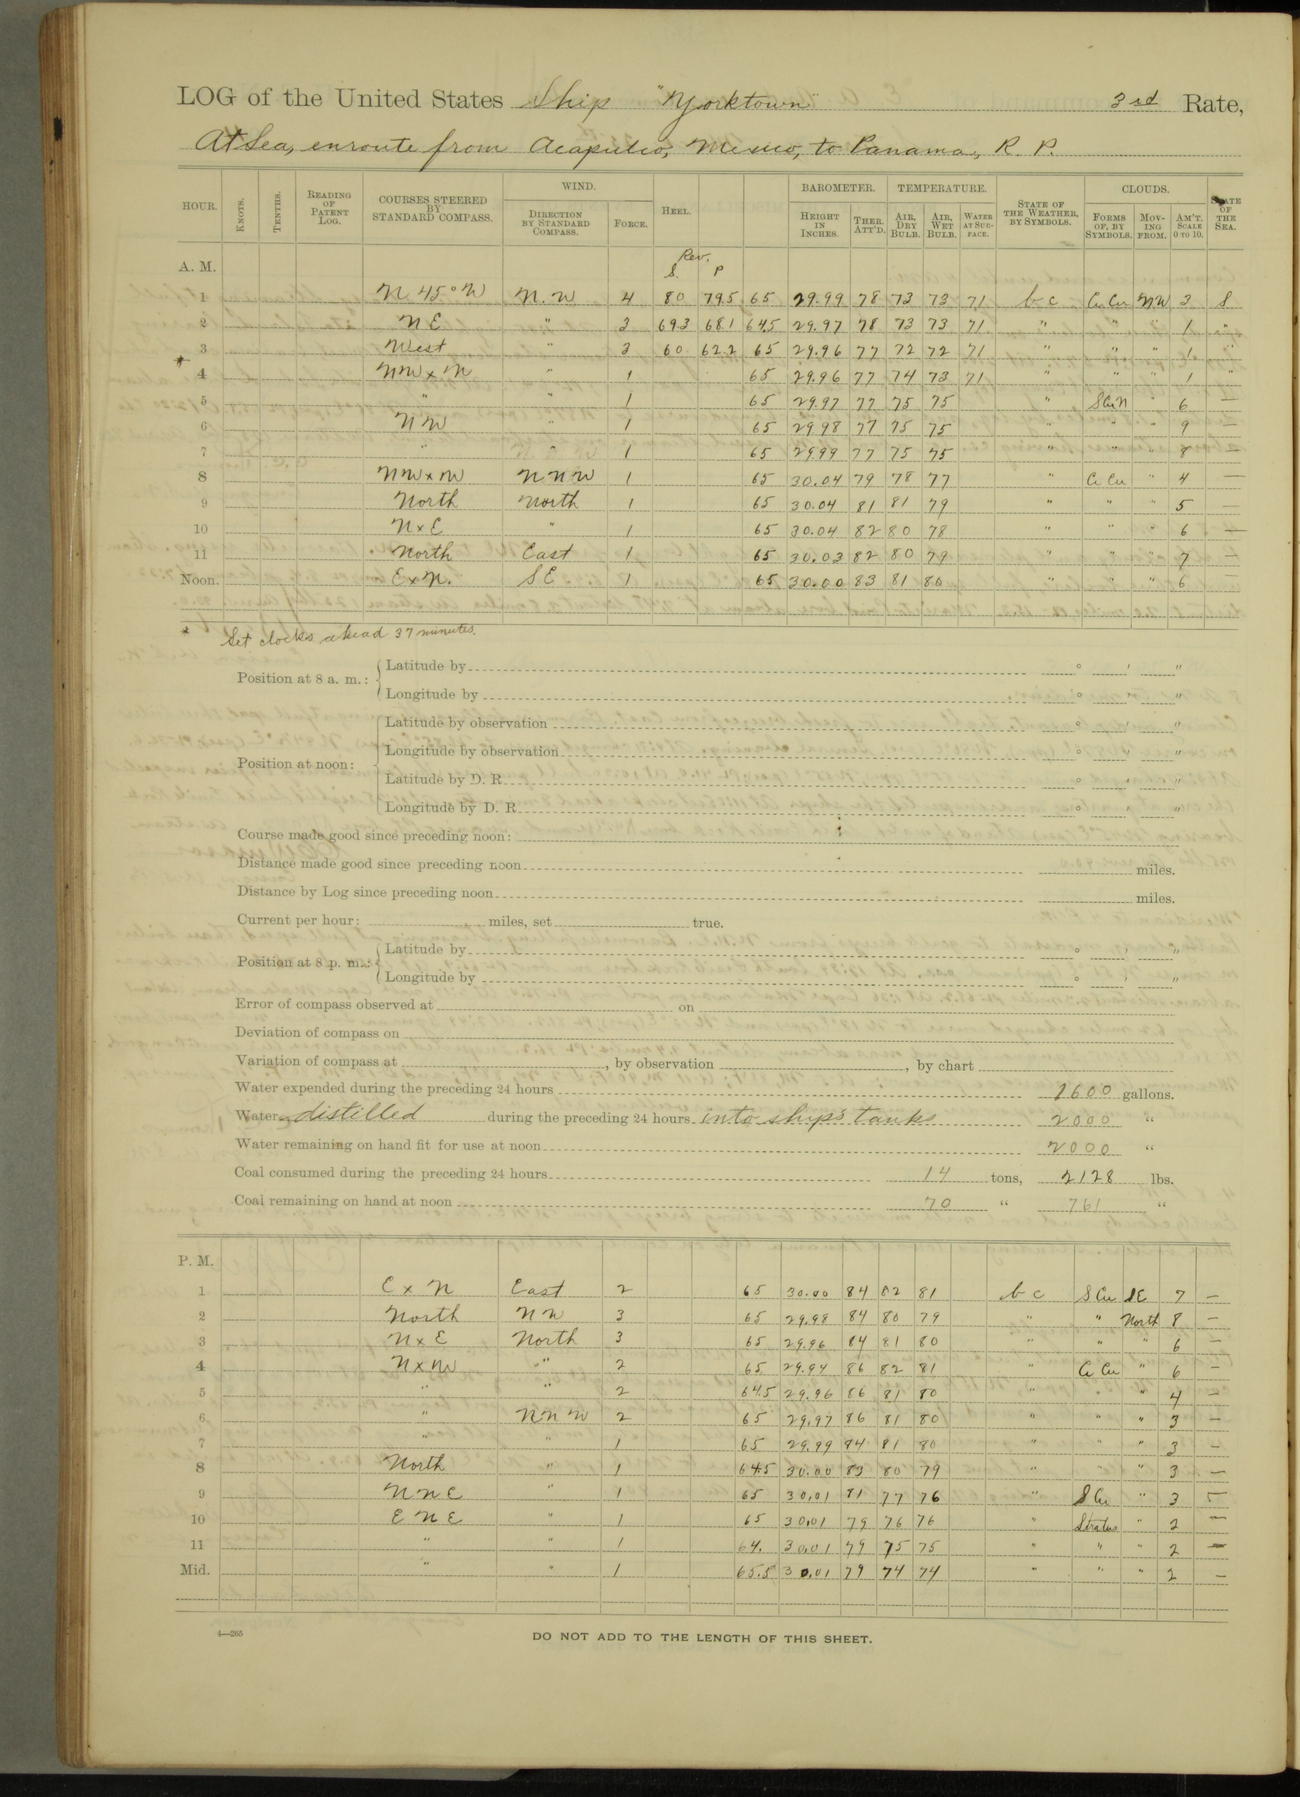 LOG of the United States Ship "Yorktown" 3rd Rate,
At Sea, enroute from Acapulco, Mexico, to Panama, R. P.
HOUR. KNOTS. TENTHS. READING OF PATENT LOG. COURSES STEERED BY STANDARD COMPASS. WIND. DIRECTION BY STANDARD COMPASS. FORCE. HEEL. BAROMETER. HEIGHT IN INCHES. THER. ATT'D. TEMPERATURE. AIR, DRY BULB. AIR, WET BULB. WATER AT SUR-FACE. STATE OF THE WEATHER, BY SYMBOLS. CLOUDS. FORMS OF, BY SYMBOLS. MOV-ING FROM. AM'T. SCALE 0 TO 10. STATE OF THE SEA.
A. M. Rev. S. P
1 N 45° W N. W 4 80 79.5 65 29.99 78 73 73 71 b c Ci Cu NW 3 S
2 NE " 3 69.3 68.1 64.5 29.97 78 73 73 71 " " " 1 "
* 3 West " 3 60 62.2 65 29.96 77 72 72 71 " " " 1 "
4 NW x N " 1 65 29.96 77 74 73 71 " " " 1 "
5 " " 1 65 29.97 77 75 75 " S Cu N " 6 —
6 NW " 1 65 29.98 77 75 75 " " " 9 —
7 " " 1 65 29.99 77 75 75 " " " 8 —
8 NW x W N N W 1 65 30.04 79 78 77 " Ci Cu " 4 —
9 North North 1 65 30.04 81 81 79 " " " 5 —
10 N x E " 1 65 30.04 82 80 78 " " " 6 —
11 North East 1 65 30.03 82 80 79 " " " 7 —
Noon. E x N. SE 1 65 30.00 83 81 80 " " " 6 —
* Set clocks ahead 37 minutes.
Position at 8 a. m.: Latitude by ° ' "
Longitude by ° ' "
Position at noon: Latitude by observation ° ' "
Longitude by observation ° ' "
Latitude by D. R. ° ' "
Longitude by D. R. ° ' "
Course made good since preceding noon:
Distance made good since preceding noon miles.
Distance by Log since preceding noon miles.
Current per hour: miles, set true.
Position at 8 p. m.: Latitude by ° ' "
Longitude by ° ' "
Error of compass observed at on
Deviation of compass on
Variation of compass at , by observation , by chart
Water expended during the preceding 24 hours 1600 gallons.
Water distilled during the preceding 24 hours into ship's tanks 2000 "
Water remaining on hand fit for use at noon 2000 "
Coal consumed during the preceding 24 hours 14 tons, 2128 lbs.
Coal remaining on hand at noon 70 " 761 "
P. M.
1 E x N East 2 65 30.00 84 82 81 b c S Cu SE 7 —
2 North NW 3 65 29.98 84 80 79 " " North 8 —
3 N x E North 3 65 29.96 84 81 80 " " " 6 —
4 N x W " 2 65 29.94 86 82 81 " Ci Cu " 6 —
5 " " 2 64.5 29.96 86 81 80 " " " 4 —
6 " N N W 2 65 29.97 86 81 80 " " " 3 —
7 " " 1 65 29.99 84 81 80 " " " 3 —
8 North " 1 64.5 30.00 83 80 79 " " " 3 —
9 N N E " 1 65 30.01 81 77 76 " S Cu " 3 —
10 E N E " 1 65 30.01 79 76 76 " Stratus " 2 —
11 " " 1 64. 30.01 79 75 75 " " " 2 —
Mid. " " 1 65.5 30.01 79 74 74 " " " 2 —
4—265
DO NOT ADD TO THE LENGTH OF THIS SHEET.